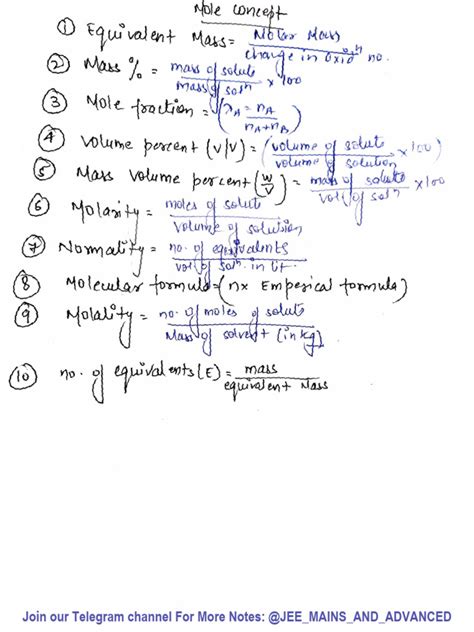 Mole concept
① Equivalent Mass = Molar Mass / change in Oxidⁿ no.
② Mass % = mass of solute / Mass of solⁿ × 100
③ Mole fraction = (χA = nA / nA+nB)
④ Volume percent (v/v) = (volume of solute / volume of solution × 100)
⑤ Mass volume percent (W/V) = mass of solute / vol. of solⁿ × 100
⑥ Molarity = moles of solute / volume of solution
⑦ Normality = no. of equivalents / vol of solⁿ. in lit
⑧ Molecular formula = (n× Emperical formula)
⑨ Molality = no. of moles of solute / Mass of solvent (in kg)
⑩ no. of equivalents (E) = mass / equivalent Mass
Join our Telegram channel For More Notes: @JEE_MAINS_AND_ADVANCED